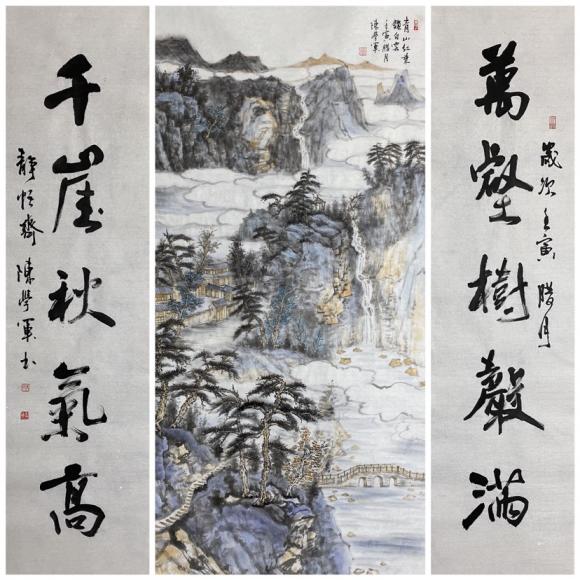 歲次壬寅腊月
萬壑樹聲滿
青山红葉
白雲
壬寅腊月
陳學軍
千崖秋氣高
靜齋陳學軍书